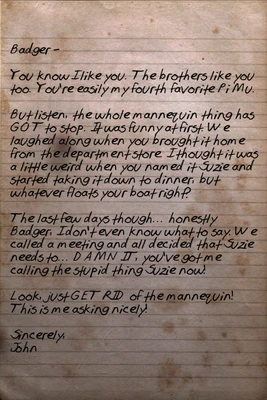 Badger -
You know I like you. The brothers like you
too. You're easily my fourth favorite Pi Mu.
But listen, the whole mannequin thing has
GOT to stop. It was funny at first. We
laughed along when you brought it home
from the department store. I thought it was
a little weird when you named it Suzie and
started taking it down to dinner, but
whatever floats your boat right?
The last few days though... honestly
Badger, I don't even know what to say. We
called a meeting and all decided that Suzie
needs to... DAMN IT, you've got me
calling the stupid thing Suzie now!
Look, just GET RID of the mannequin!
This is me asking nicely!
Sincerely,
John